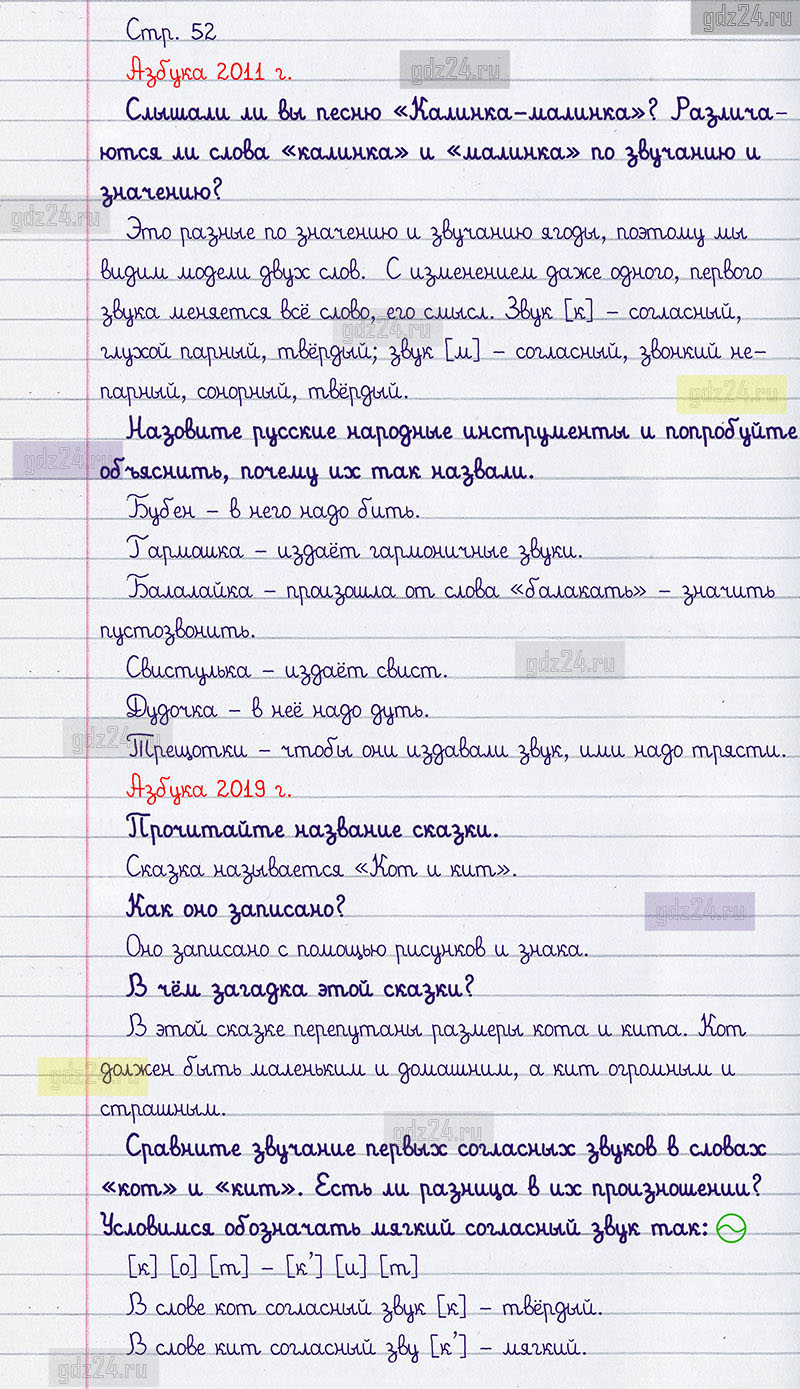 gdz24.ru
Стр. 52
Азбука 2011 г.
gdz24.ru
Слышали ли вы песню «Калинка-малинка»? Различа-
ются ли слова «калинка» и «малинка» по звучанию и
значению?
gdz24.ru
Это разные по значению и звучанию ягоды, поэтому мы
видим модели двух слов. С изменением даже одного, первого
звука меняется всё слово, его смысл. Звук [к] – согласный,
gdz24.ru
глухой парный, твёрдый; звук [м] – согласный, звонкий не-
парный, сонорный, твёрдый.
gdz24.ru
Назовите русские народные инструменты и попробуйте
gdz24.ru
объяснить, почему их так назвали.
Бубен – в него надо бить.
Гармошка – издаёт гармоничные звуки.
Балалайка – произошла от слова «балакать» – значить
пустозвонить.
gdz24.ru
Свистулька – издаёт свист.
Дудочка – в неё надо дуть.
gdz24.ru
Трещотки – чтобы они издавали звук, ими надо трясти.
Азбука 2019 г.
Прочитайте название сказки.
Сказка называется «Кот и кит».
Как оно записано?
gdz24.ru
Оно записано с помощью рисунков и знака.
В чём загадка этой сказки?
В этой сказке перепутаны размеры кота и кита. Кот
должен быть маленьким и домашним, а кит огромным и
gdz24.ru
страшным.
gdz24.ru
Сравните звучание первых согласных звуков в словах
«кот» и «кит». Есть ли разница в их произношении?
Условимся обозначать мягкий согласный звук так:
[к] [о] [т] – [к’] [и] [т]
В слове кот согласный звук [к] – твёрдый.
В слове кит согласный зву [к’] – мягкий.
gdz24.ru